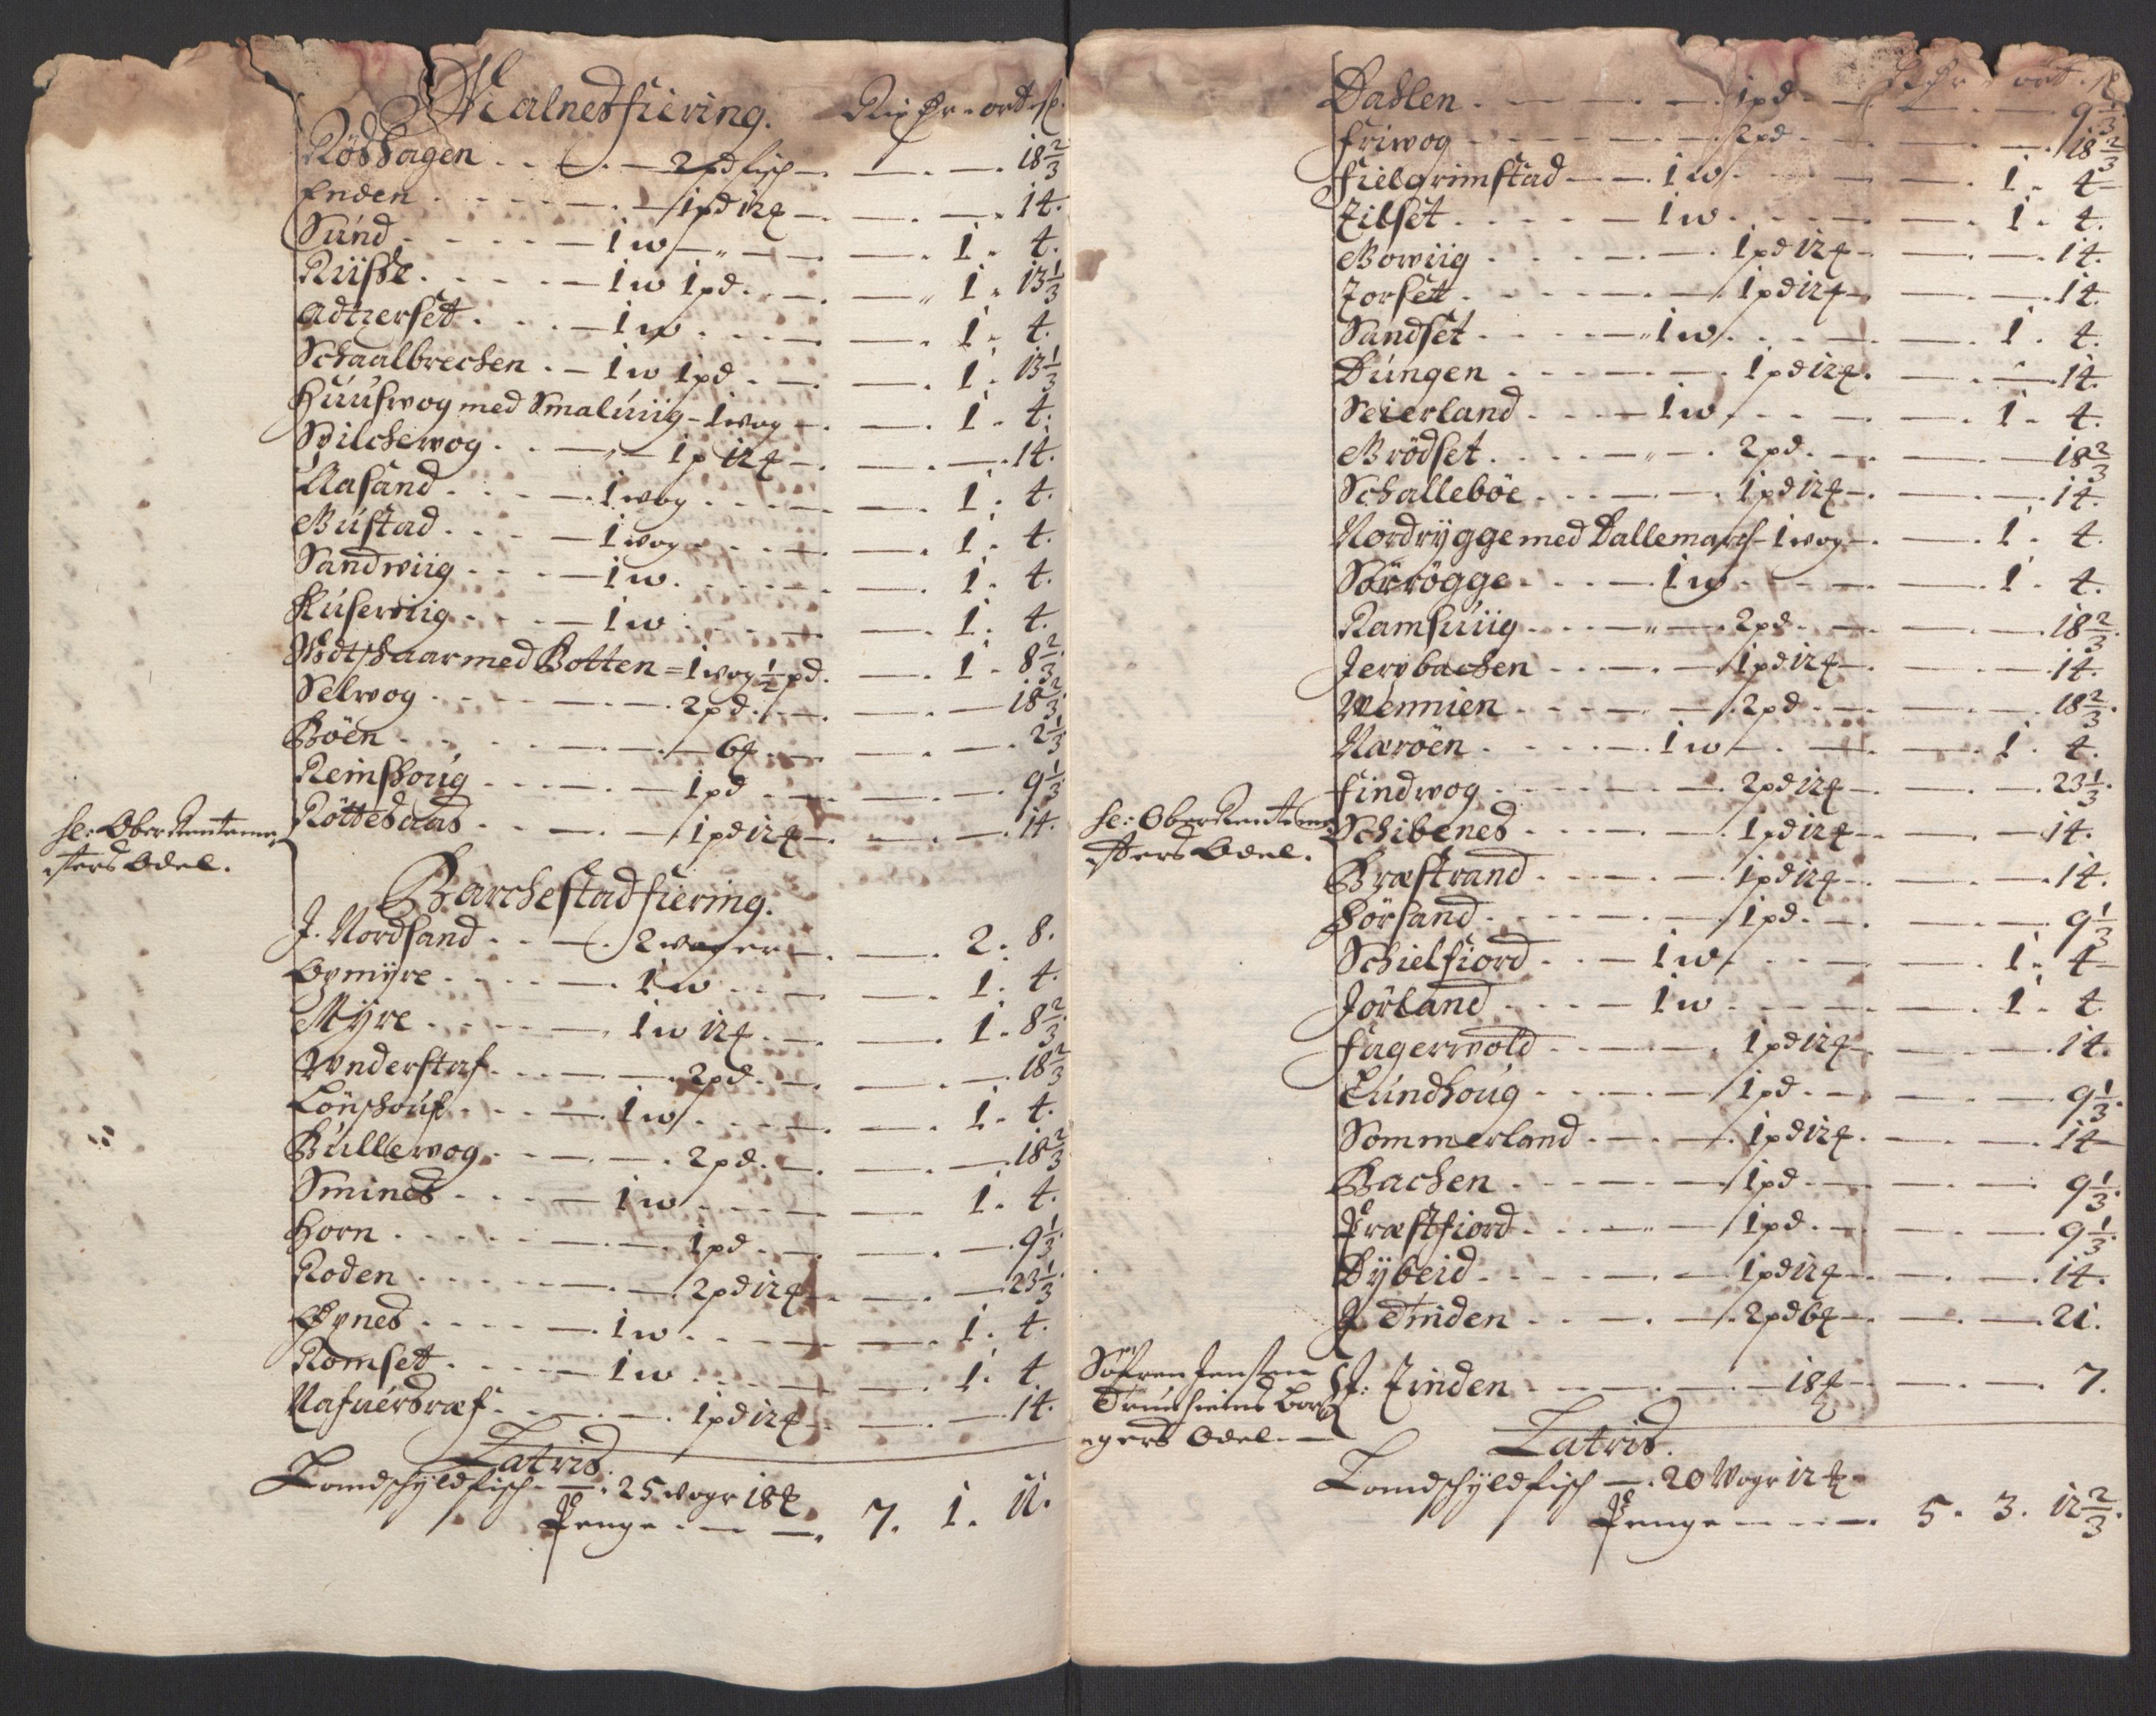 Malnesfiering. Rix dr - ort - sk.
Rödhagen - 2 pd fisch - 18 2/3
Enden - 1 pd 12 # - 14.
Sund - 1 w - 1 - 4.
Riisse - 1 w 1 pd - 1 - 13 1/3
Adtzerset - 1 w - 1 - 4.
Schaalbrechen - 1 w 1 pd - 1 - 13 1/3
Huuswog med Smaluiig - 1 wog - 1 - 4.
Spilchewog - 1 p 12 # - 14.
Aasand - 1 wog - 1 - 4.
Bustad - 1 wog - 1 - 4.
Sandwiig - 1 w - 1 - 4.
Kusewiig - 1 w - 1 - 4.
Wdtschaar med Botten = 1 wog 1/2 pd - 1 - 8 2/3
Selwog - 2 pd - 18 2/3
Böen - 6 # - 2 1/3
Reinshoug - 1 pd - 9 1/3
Röttesaas - 1 pd 12 # - 14.
Sl: Ober Renteme
sters Odel.
Barchestadfiering.
J. Nordsand - 2 woger - 2 - 8.
Opmÿre - 1 w - 1 - 4.
Mÿre - 1 w 12 # - 1 - 8 2/3
Wnderstaf - 2 pd - 18 2/3
Lönschouf - 1 w - 1 - 4.
Gullewog - 2 pd - 18 2/3
Smines - 1 w - 1 - 4.
Horn - 1 pd - 9 1/3
Roden - 2 pd 12 # - 23 1/3
Øynes - 1 w - 1 - 4.
Romset - 1 w - 1 - 4.
Nafuersræf - 1 pd 12 # - 14.
Latris.
Landschÿldfisch - 25 wogr 18 #
Penge - 7. 1. 11.
Dahlen - 1 pd - 9 1/3
Friwog - 2 pd - 18 2/3
Fielgrimstad - 1 w - 1 - 4
Jilset - 1 w - 1 - 4.
Bowiig - 1 pd 12 # - 14.
Jorset - 1 pd 12 # - 14.
Sandset - 1 w - 1 - 4.
Dungen - 1 pd 12 # - 14.
Seierland - 1 w - 1 - 4.
Brödset - 2 pd - 18 2/3
Schalleböe - 1 pd 12 # - 14.
Nordrÿgge med Dallemarch - 1 wog - 1 - 4.
Sörrögge - 1 w - 1 - 4.
Ramsuiig - 2 pd - 18 2/3
Jerpbachen - 1 pd 12 # - 14.
Wennien - 2 pd - 18 2/3
Næröen - 1 w - 1 - 4.
Findwog - 2 pd 12 # - 23 1/3
Sl: Ober Renteme
sters Odel.
Schibenes - 1 pd 12 # - 14.
Græstrand - 1 pd 12 # - 14.
Hörsand - 1 pd - 9 1/3
Schielfiord - 1 w - 1 - 4
Jörland - 1 w - 1 - 4
Fagerwold - 1 pd 12 # - 14.
Lundhoug - 1 pd - 9 1/3
Sommerland - 1 pd 12 # - 14
Bachen - 1 pd - 9 1/3
Præstfiord - 1 pd - 9 1/3
Dÿbeid - 1 pd 12 # - 14.
J. Tinden - 2 pd 6 # - 21.
Söfren Jensen
Trundhiems Bor
gers Odel
J: Tinden - 18 # - 7.
Latris.
Landschÿldfisch - 20 Wogr 12 #
Penge - 5. 3. 12 2/3